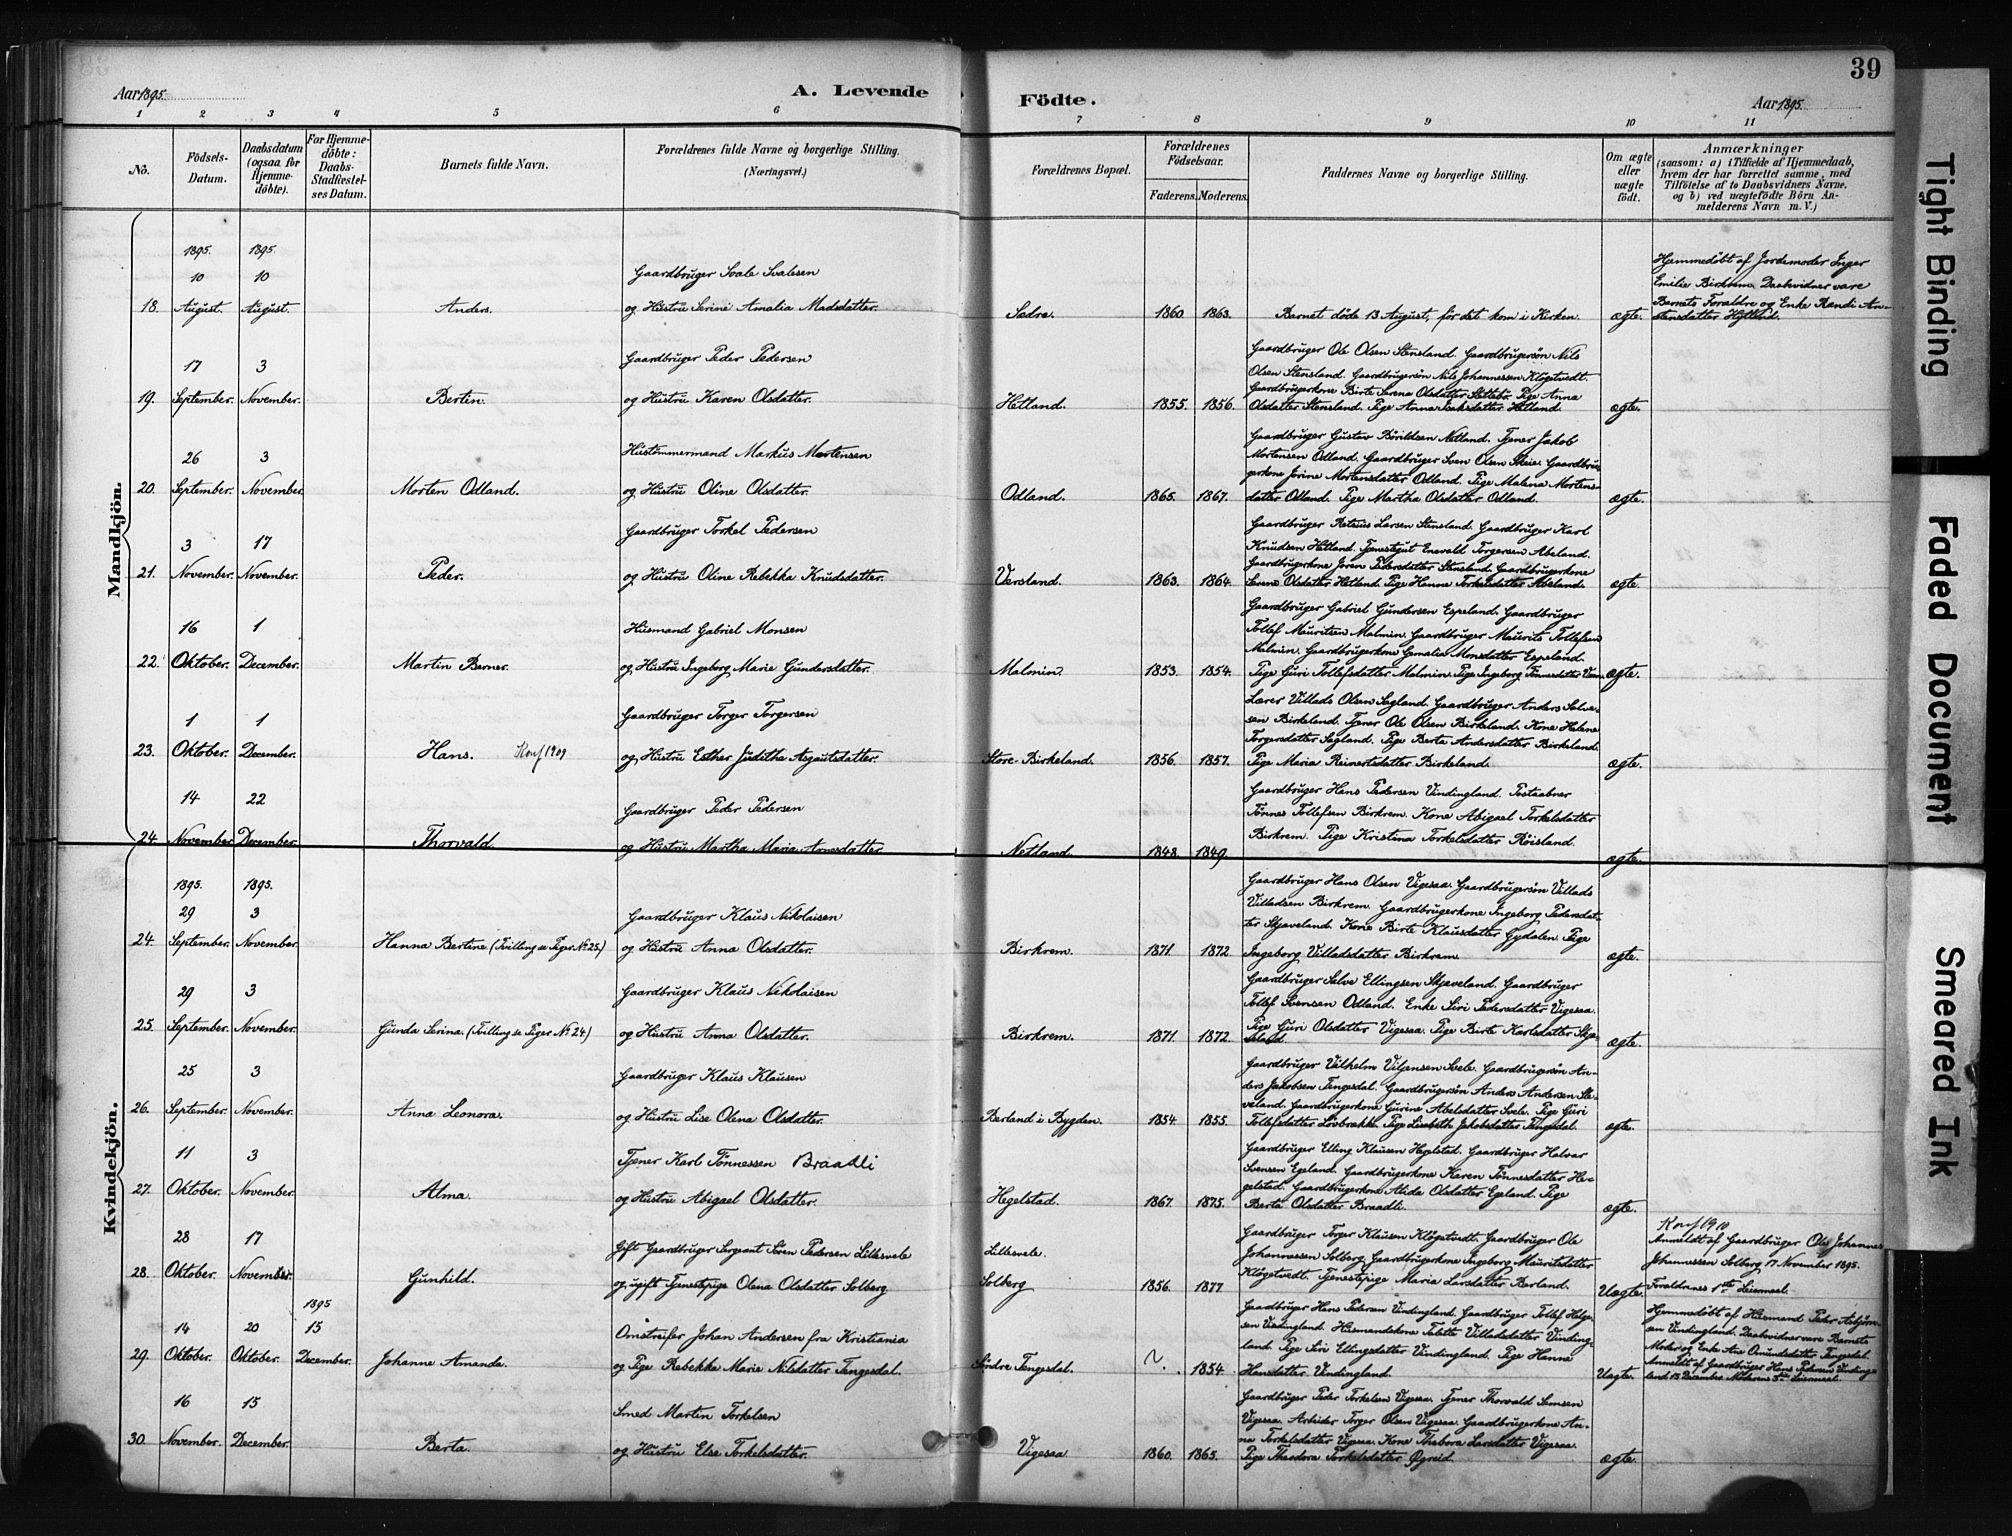 39
Aar 1895.
A. Levende
Födte.
Aar 1895.
1 2 3 4 5 6 7 8 9 10 11
No.
Födsels-Datum.
Daabsdatum (ogsaa for Hjemme-döbte).
For Hjemme-döbte: Daabs-Stadfæstel-ses Datum.
Barnets fulde Navn.
Forældrenes fulde Navne og borgerlige Stilling. (Næringsvei.)
Forældrenes Bopæl.
Forældrenes Födselsaar.
Faderens. Moderens.
Faddernes Navne og borgerlige Stilling.
Om ægte eller uægte födt.
Anmærkninger
(saasom: a) i Tilfælde af Hjemmedaab,
hvem der har forrettet samme, med
Tilföielse af to Daabsvidners Navne,
og b) ved uægtefödte Börn An-
melderens Navn m. V.)
Mandkjön.
1895. 1895.
10 10 Gaardbruger Svale Svalesen
18. August. August. Anders. og Hustru Serine Amalia Madsdatter. Sædre. 1860 1863. Barnet döde 13 August, för det kom i Kirken. ægte.
Hjemmedöbt af Jordemoder Inger
Emilie Birkrem. Daabsvidner vare
Barnets Forældre og Enke Randi An-
stensdatter Hytland.
17 3 Gaardbruger Peder Pedersen
19. September. November. Bertin. og Hustru Karen Olsdatter. Hetland. 1855. 1856. ægte.
Gaardbruger Ole Olsen Stensland. Gaardbrugersön Nils
Olsen Stensland. Gaardbrugersön Nils Johannessen Klögetvedt.
Gaardbrugerkone Birte Serena Olsdatter Sæteb. Pige Anna
Olsdatter Stensland. Pige Anna Isaksdatter Hetland.
26 3 Hustömmermand Markus Mortensen
20. September. November. Morten Odland. og Hustru Oline Olsdatter. Odland. 1865. 1867. ægte.
Gaardbruger Gustav Börildsen Netland. Tjener Jakob
Mortensen Odland. Gaardbruger Sven Olsen Skeie. Gaardbru-
gerkone Jorine Mortensdatter Odland. Pige Malena Mortens-
datter Odland. Pige Martha Olsdatter Odland.
3 17 Gaardbruger Torkel Pedersen
21. November. November. Peder. og Hustru Oline Rebekka Knudsdatter. Versland. 1863. 1864. ægte.
Gaardbruger Retsius Larsen Stensland. Gaardbruger Karl
Knudsen Hetland. Tjenestegut Enevald Torgersen Abeland.
Gaardbrugerkone Joren Pedersdatter Stensland. Gaardbrugerkone
Olsdatter Hetland. Pige Hanne Torkelsdatter Abeland.
16 1 Husmand Gabriel Monsen
22. Oktober. December. Martin Berner. og Hustru Ingeborg Marie Gundersdatter. Malmin. 1853. 1854. ægte.
Gaardbruger Gabriel Gundersen Espeland. Gaardbruger
Tollef Mauritsen Malmin. Gaardbruger Maurits Tollefsen
Malmin. Gaardbrugerkone Monsdatter Espeland.
Pige Guri Tollefsdatter Malmin. Pige Ingeborg Tönnesdatter
1 1 Gaardbruger Torger Torgersen
23. Oktober. December. Hans. Konf 1909 og Hustru Esther Juditha Asgautsdatter. Store-Birkeland. 1856. 1857. ægte.
Lærer Villads Olsen Sagland. Gaardbruger Anders Salve-
sen Birkeland. Tjener Ole Olsen Birkeland. Kone Helene
Torgersdatter Sagland. Pige Berta Andersdatter Birkeland.
Pige Maria Reinertsdatter Birkeland.
14 22 Gaardbruger Peder Pedersen
24. November. December. Thorvald. og Hustru Martha Maria Arnesdatter. Netland. 1848. 1849. ægte.
Gaardbruger Hans Pedersen Vindingland. Postaabner
Tönnes Tollefsen Birkrem. Kone Abigael Torkelsdatter
Birkrem. Pige Kristina Torkelsdatter Röisland.
Kvindekjön.
1895. 1895.
29 3 Gaardbruger Klaus Nikolaisen
24. September. November. Hanna Bertine (Tvilling se Piger No 25.) og Hustru Anna Olsdatter. Birkrem. 1871. 1872. ægte.
Gaardbruger Hans Olsen Vigesaa. Gaardbrugersön Villads
Villadsen Birkrem. Gaardbrugerkone Ingeborg Pedersdat-
ter Skjæveland. Kone Birte Klausdatter Gydalen. Pige
Ingeborg Villadsdatter Birkrem.
29 3 Gaardbruger Klaus Nikolaisen
25. September. November. Gunda Serina. (Tvilling se Piger No 24.) og Hustru Anna Olsdatter. Birkrem. 1871. 1872. ægte.
Gaardbruger Salve Ellingsen Skjæveland. Gaardbruger
Tollef Svensen Odland. Enke Siri Pedersdatter Vigesaa.
Pige Guri Olsdatter Vigesaa. Pige Birte Karlsdatter Skjæ-
veland.
25 3 Gaardbruger Klaus Klausen
26. September. November. Anna Leonora. og Hustru Lise Olena Olsdatter. Berland i Bygden. 1854. 1855. ægte.
Gaardbruger Vilhelm Viljensen Svele. Gaardbrugersön An-
ders Jakobsen Tengesdal. Gaardbrugersön Anders Andersen Ske-
veland. Gaardbrugerkone Gurine Abelsdatter Svele. Pige Guri
Tollefsdatter Lövbrække. Pige Lisebeth Jakobsdatter Tengesdal.
11 3 Tjener Karl Tönnessen Braadli
27. Oktober. November. Alma. og Hustru Abigael Olsdatter. Hegelstad. 1867. 1875. ægte.
Gaardbruger Elling Klausen Hegelstad. Gaardbruger Halvar
Svensen Egeland. Gaardbrugerkone Karen Tönnesdatter He-
gelstad. Gaardbrugerkone Alida Olsdatter Egeland. Pige
Berta Olsdatter Braadli.
28 17 Gift Gaardbruger Sergeant Sören Pedersen Lillesvele Lillesvele.
28. Oktober. November. Gunhild. og ugift Tjenestepige Olena Olsdatter Solberg Solberg 1856. 1877 Uægte.
Gaardbruger Torger Klausen Klögetvedt. Gaardbruger Ole
Johannessen Solberg. Gaardbrugerkone Ingeborg Mauritsdatter
Klögetvedt. Tjenestepige Maria Larsdatter Berland.
Konf 1910
Anmeldt af Gaardbruger Ole Johannes
Johannessen Solberg 17 November 1895.
Forældrenes 1ste Leiermaal.
1895
14 20 15 Omstreifer Johan Andersen fra Kristiania
29. Oktober. Oktober. December. Johanne Amanda. og Pige Rebekke Marie Nilsdatter Tengesdal. Söndre Tengesdal. ?. 1854 Uægte.
Gaardbruger Hans Pedersen Vindingland. Gaardbruger Tollef Helge-
sen Vindingland. Husmandskone Tabitte Villadsdatter Vinding-
land. Pige Siri Ellingsdatter Vindingland. Pige Hanne
Hansdatter Vindingland.
Hjemmedöbt af Husmand Peder Asbjörn-
sen Vindingland. Daabsvidner vare Barnets
Moder og Enke Ane Omundsdatter Tengesdal.
Anmeldt af Gaardbruger Hans Pedersen Vinding-
land 15 December. Moderens Leiermaal.
16 15 Smed Martin Torkelsen
30. November. December. Berta. og Hustru Else Torkelsdatter. Vigesaa 1860. 1865. ægte.
Gaardbruger Peder Torkelsen Vigesaa. Tjener Thorvald Samsen
Vigesaa. Arbeider Torger Olsen Vigesaa. Gaardbrugerkone An-
na Torkelsdatter Vigesaa. Kone Thabora Larsdatter Vigesaa.
Pige Theodora Torkelsdatter Øgreid.
Tight Binding
Faded Document
Smeared Ink